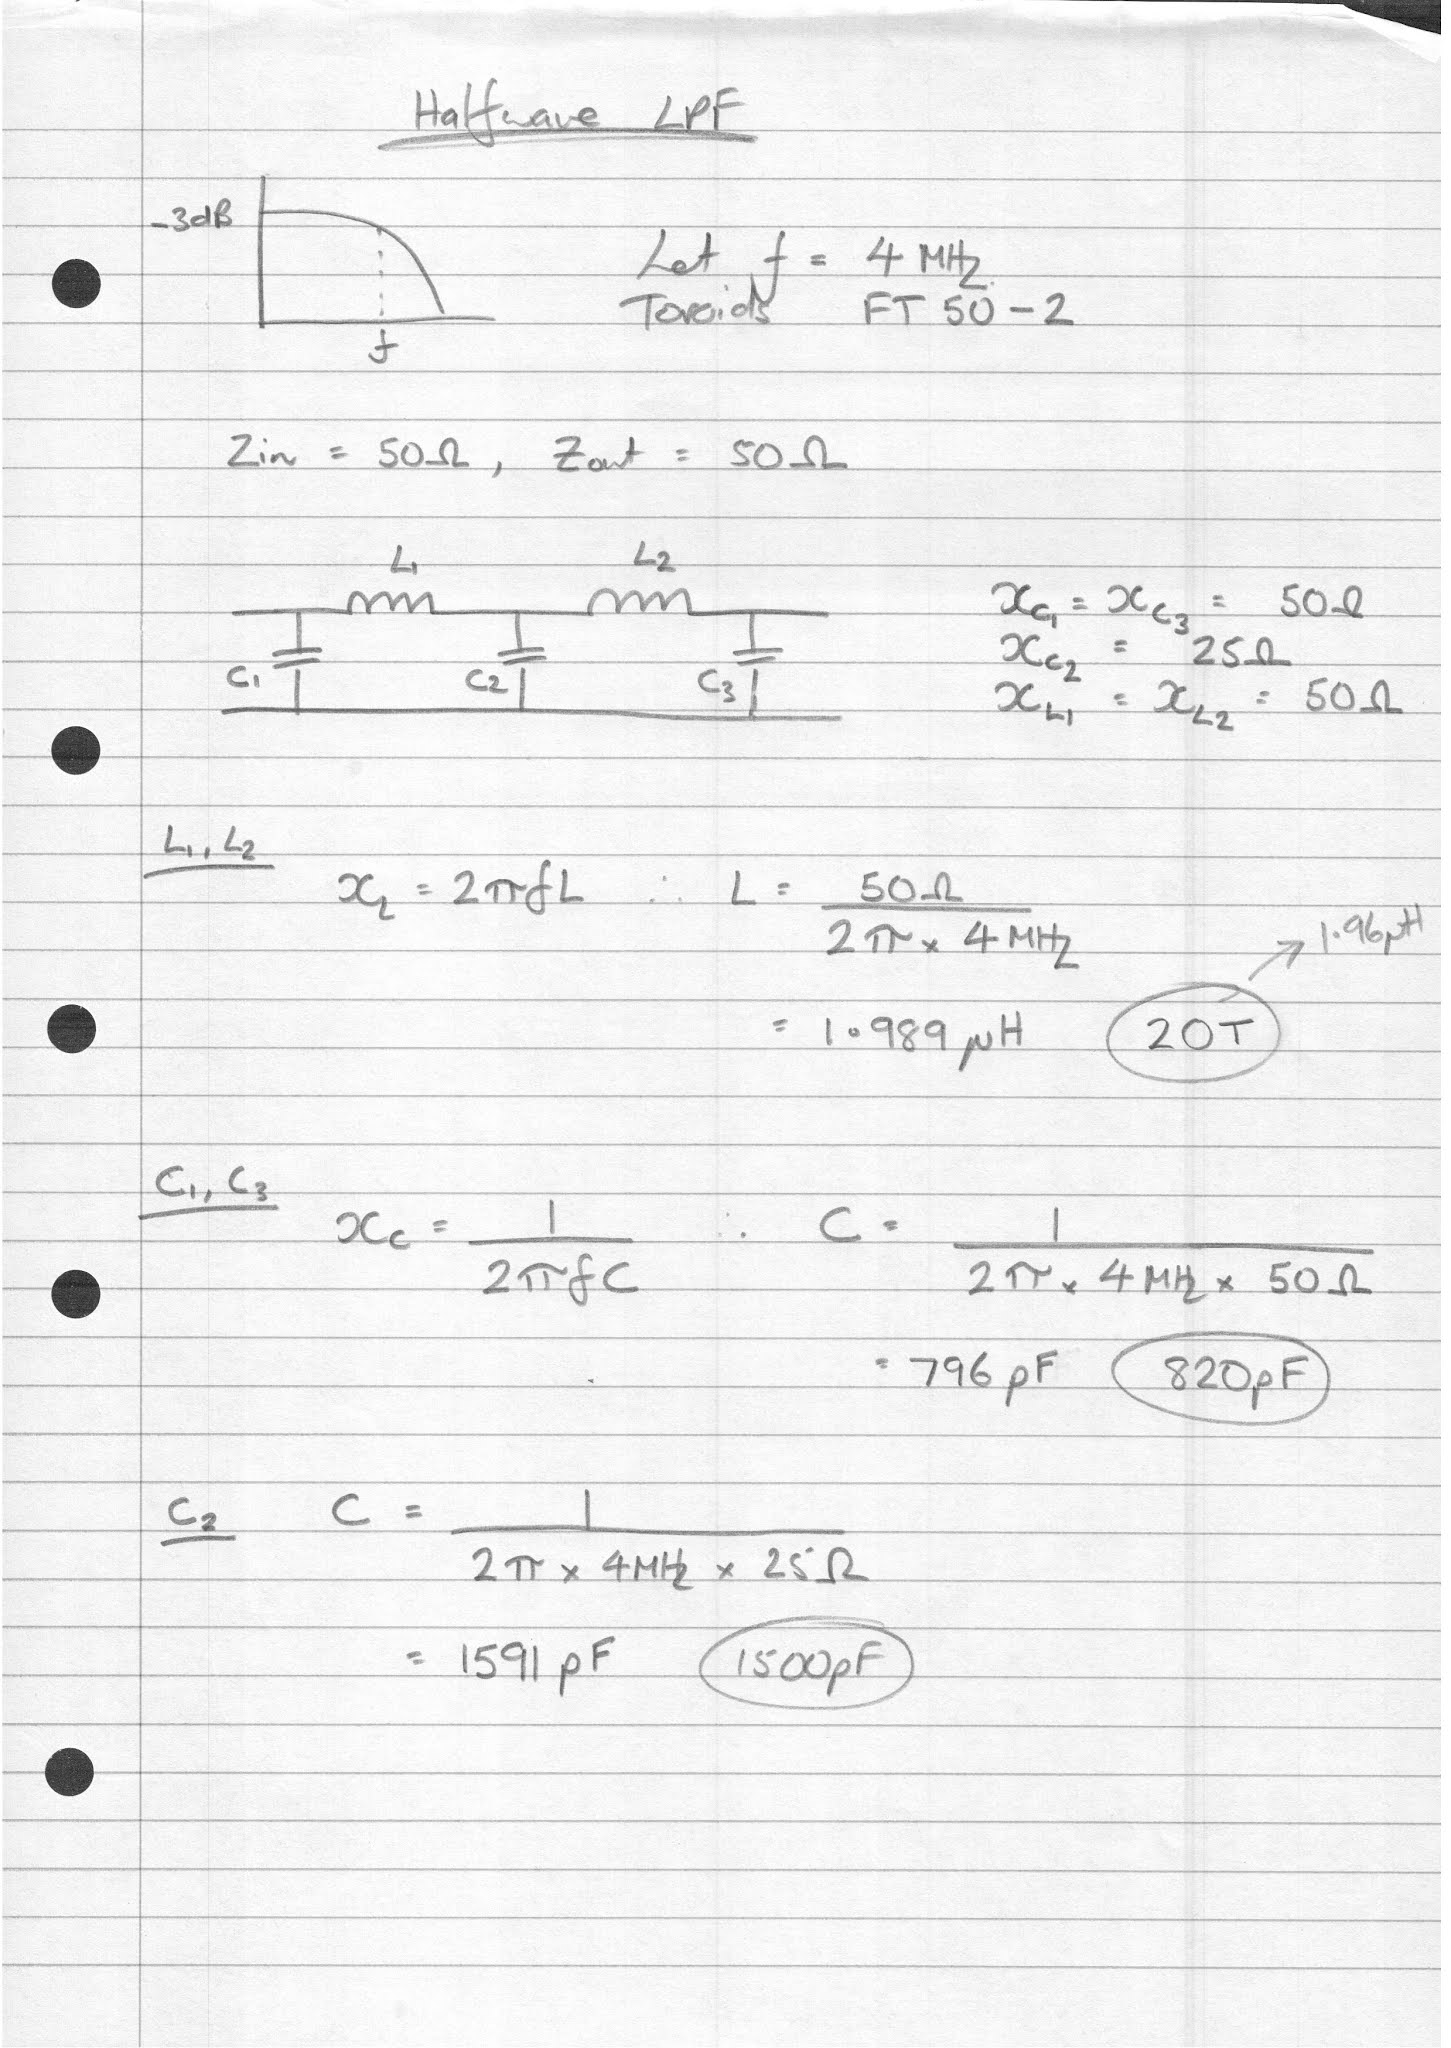 Halfwave LPF
-3dB
f
Let f = 4 MHz
Toroids FT 50-2
Zin = 50Ω, Zout = 50Ω
L1 L2
C1 C2 C3
xC1 = xC3 = 50Ω
xC2 = 25Ω
xL1 = xL2 = 50Ω
L1, L2
xL = 2πfL ∴ L = 50Ω / 2π × 4MHz
= 1.989 μH 20T → 1.96μH
C1, C3
xC = 1 / 2πfC ∴ C = 1 / 2π × 4MHz × 50Ω
= 796 pF 820pF
C2 C = 1 / 2π × 4MHz × 25Ω
= 1591 pF 1500pF